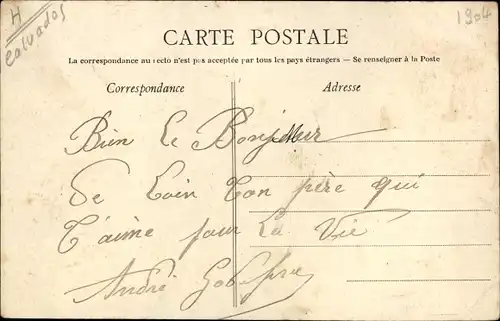 H
Calvados
1904
CARTE POSTALE
La correspondance au recto n'est pas acceptée par tous les pays étrangers — Se renseigner à la Poste
Correspondance
Adresse
Bien le Bonjour
M
De Loin Ton père qui
T'aime pour La Vie
André